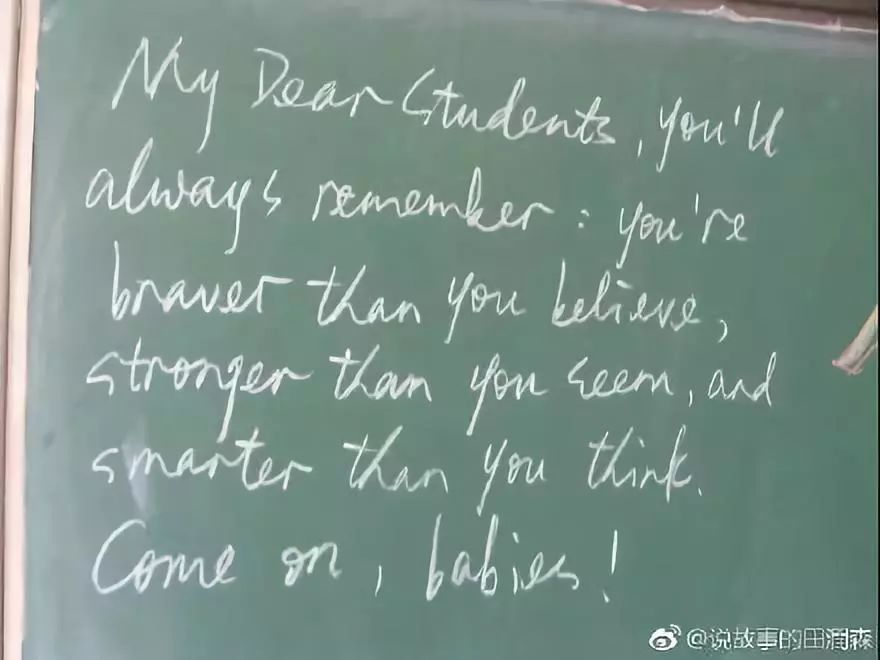 My Dear Students, you'll
always remember: you're
braver than you believe,
stronger than you seem, and
smarter than you think.
Come on, babies!
@说故事的田润森